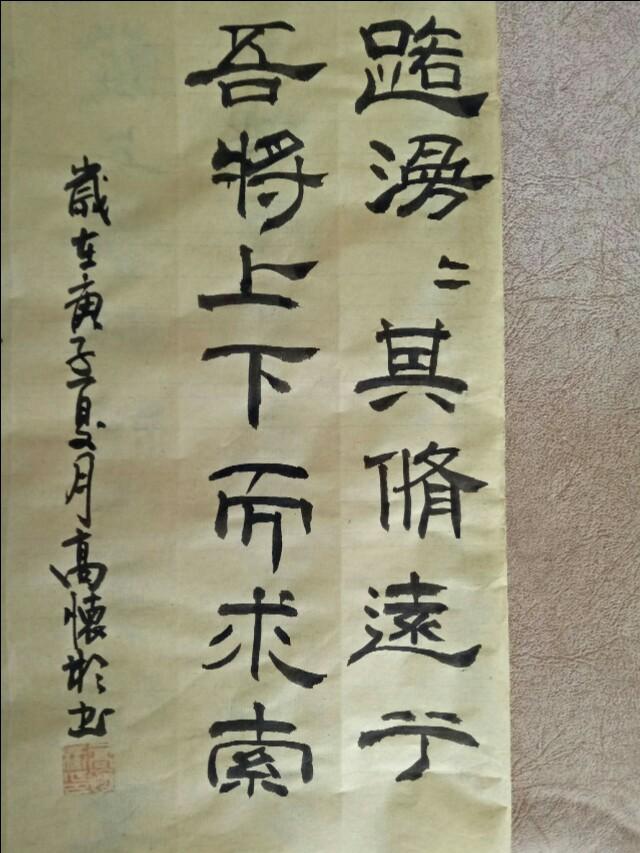 路漫〻其脩遠兮
吾將上下而求索
歲在庚子夏月高懷书